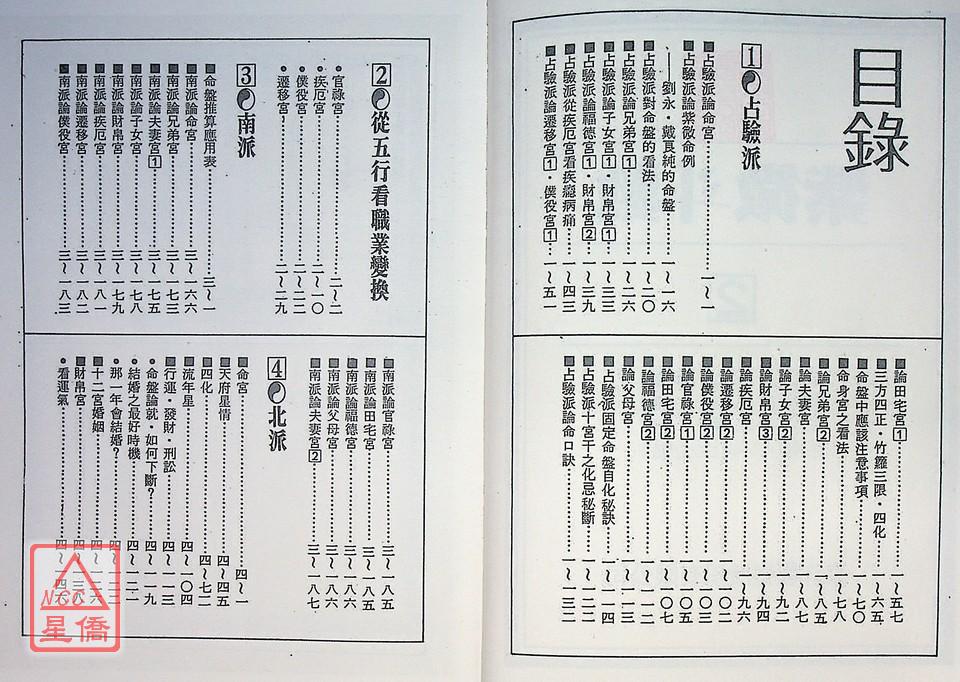 目錄
1 占驗派
■占驗派論命宮……一～一
■占驗派論紫微命例
——劉永・戴良純的命盤……一～一六
■占驗派對命盤的看法……一～二〇
■占驗派論兄弟宮1……一～二六
■占驗派論子女宮1・財帛宮1……一～三三
■占驗派論福德宮1・財帛宮2……一～三九
■占驗派從疾厄宮看疾癌病痛……一～四三
■占驗派論遷移宮1・僕役宮1……一～五一
■論田宅宮1……一～五七
●三方四正・竹羅三限・四化……一～六五
●命盤中應該注意事項……一～七〇
●命身宮之看法……一～七八
■論兄弟宮2……一～八五
■論夫妻宮……一～八七
■論子女宮2……一～九二
■論財帛宮3……一～九四
■論疾厄宮……一～九六
■論遷移宮2……一～一〇二
■論僕役宮2……一～一〇三
■論官祿宮1……一～一〇五
■論田宅宮2……一～一〇七
■論福德宮2……一～一一二
■論父母宮……一～一一三
■占驗派固定命盤自化秘訣……一～一一四
■占驗派十宮干之化忌秘斷……一～一二二
■占驗派論命口訣……一～一三二
2 從五行看職業變換
●官祿宮……二～二
●疾厄宮……二～一〇
●僕役宮……二～二二
●遷移宮……二～二九
3 南派
■命盤推算應用表……三～一
■南派論命宮……三～一六六
■南派論兄弟宮……三～一七三
■南派論夫妻宮1……三～一七五
■南派論子女宮……三～一七八
■南派論財帛宮……三～一七九
■南派論疾厄宮……三～一八一
■南派論遷移宮……三～一八二
■南派論僕役宮……三～一八三
■南派論官祿宮……三～一八五
■南派論田宅宮……三～一八五
■南派論福德宮……三～一八六
■南派論父母宮……三～一八六
■南派論夫妻宮2……三～一八七
4 北派
■命宮……四～一
■天府星情……四～四五
■四化……四～七二
■流年星……四～一〇四
■行運・發財・刑訟……四～一一三
●命盤論就・如何下斷？……四～一一九
●結婚之最好時機……四～一二一
●那一年會結婚？……四～一二二
■十二宮婚姻……四～一二六
■財帛宮……四～一三八
●看運氣……四～一四六
NCC
星僑